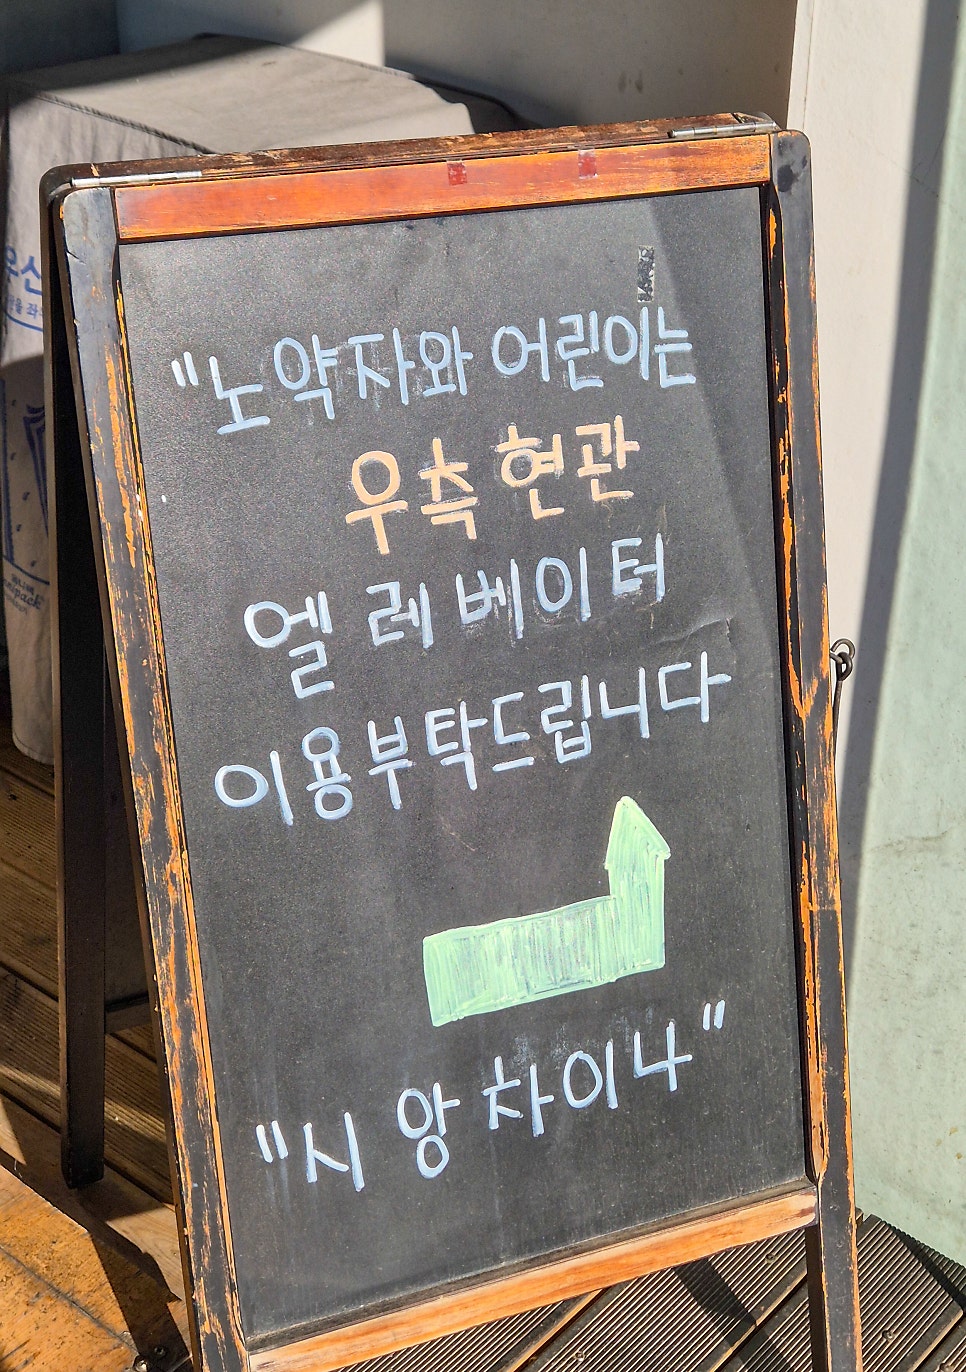 "노약자와 어린이는
우측 현관
엘레베이터
이용부탁드립니다
"시앙차이나"